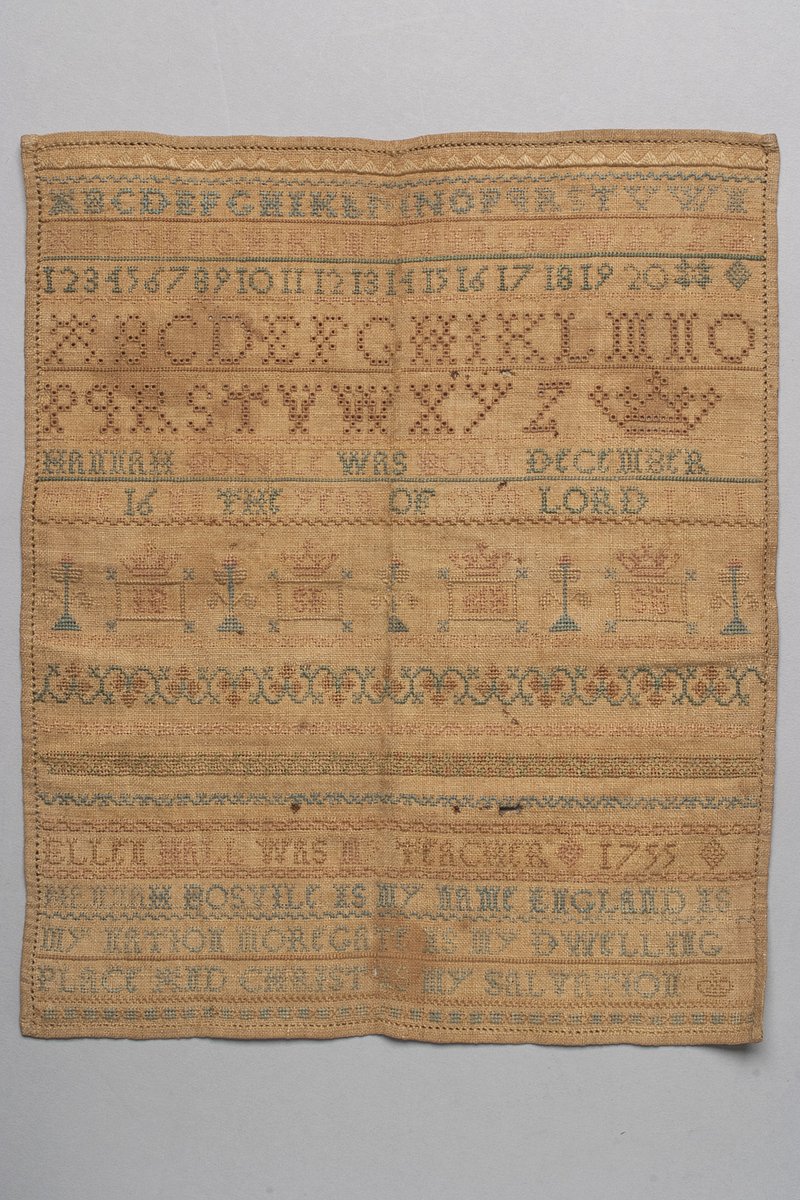 ABCDEFGHIKLMNOPQRSTVWX
1234567891011121314151617181920
ABCDEFGHIKLMNO
PQRSTVWXYZ
HANNAH BOSVILE WAS BORN DECEMBER
16 IN THE YEAR OF OUR LORD
HB SB
ELLEN HALL WAS MY TEACHER 1755
HANNAH BOSVILE IS MY NAME ENGLAND IS
MY NATION MOREGATE IS MY DWELLING
PLACE AND CHRIST IS MY SALVATION